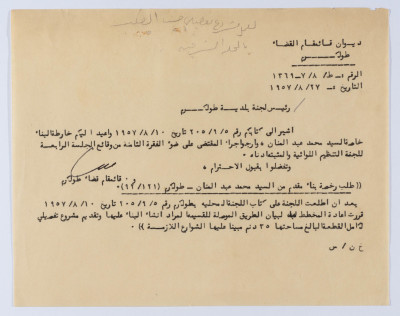 ديوان قائمقام القضاء
طولكرم
الرقم :- ط/ ٧/٨ - ١٣٦٩
التاريخ :- ١٩٥٧/٨/٢٧
رئيس لجنة بلدية طولكرم
اشير الى كتابكم رقم ٢٠٥/٩/٥ تاريخ ١٩٥٧/٨/١٠ واعيد اليكم خارطة البناء
خاصة السيد محمد عبد الحنان وارجو اجراء المقتضى على ضوء الفقرة الثامنة من وقائع الجلسة الرابعة
للجنة التنظيم اللوائية والمثبتة ادناه .
وتفضلوا بقبول الاحترام ،
قائمقام قضاء طولكرم
(( طلب رخصة بناء مقدم من السيد محمد عبد الحنان - طولكرم
بعد ان اطلعت اللجنة على كتاب اللجنة المحلية بطولكرم رقم ٢٠٥/٩/٥ تاريخ ١٩٥٧/٨/١٠
قررت اعادة المخطط لبيان الطريق الموصلة للقسيمة المراد انشاء البناء عليها وتقديم مشروع تفصيلي
لكامل القطعة البالغ مساحتها ٣٥ دنم مبينا عليها الشوارع اللازمة )) .